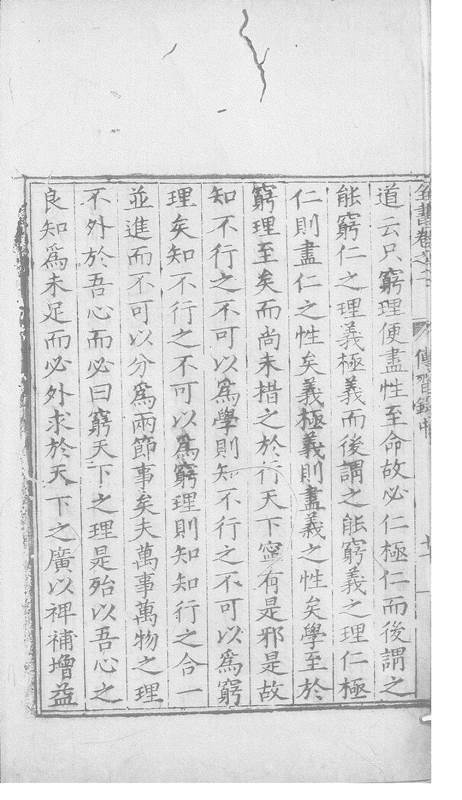 全書卷之二
傳習錄中
道云只窮理便盡性至命故必仁極仁而後謂之
能窮仁之理義極義而後謂之能窮義之理仁極
仁則盡仁之性矣義極義則盡義之性矣學至於
窮理至矣而尚未措之於行天下寧有是邪是故
知不行之不可以爲學則知不行之不可以爲窮
理矣知不行之不可以爲窮理則知知行之合一
並進而不可以分爲兩節事矣夫萬事萬物之理
不外於吾心而必曰窮天下之理是殆以吾心之
良知爲未足而必外求於天下之廣以裨補增益